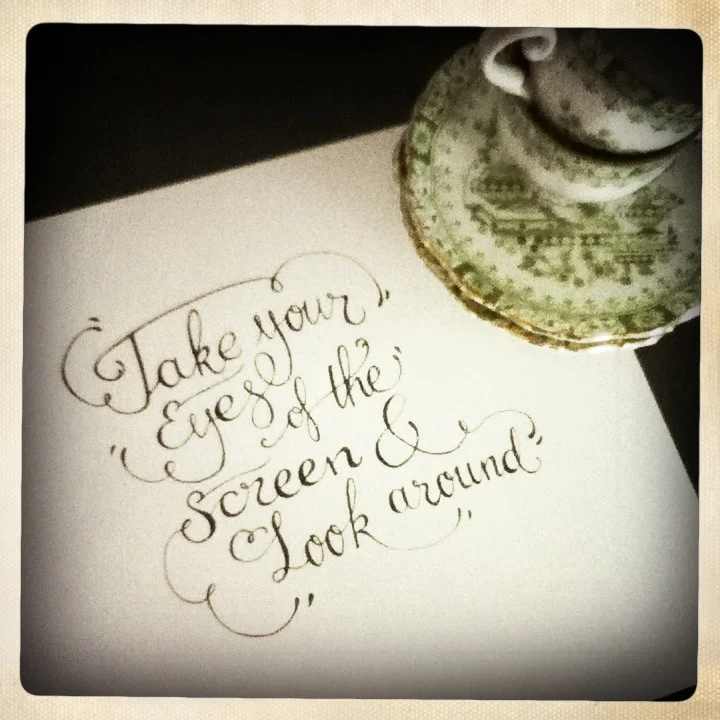 Take your
Eyes of the
Screen &
Look around